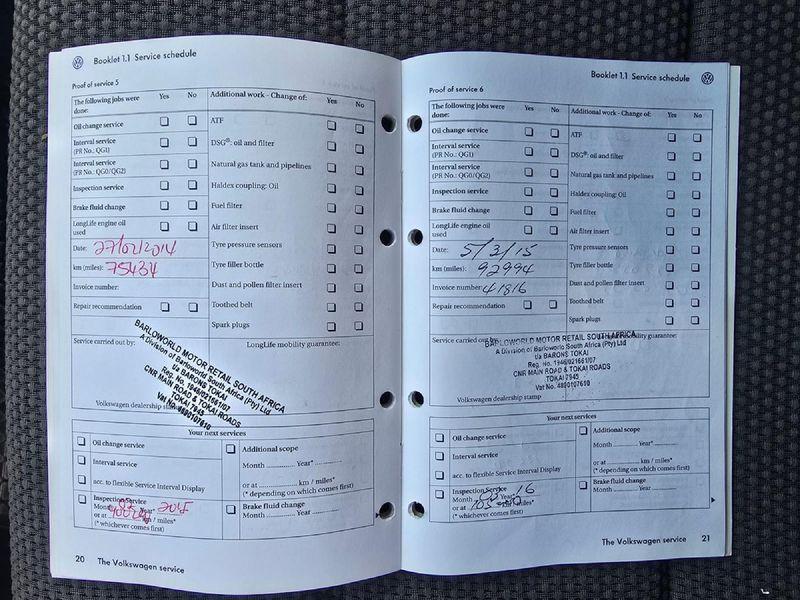 Booklet 1.1 Service schedule
Proof of service 5
The following jobs were done: Yes No
Additional work - Change of: Yes No
Oil change service
Interval service (PR No.: QG1)
Interval service (PR No.: QG0/QG2)
Inspection service
Brake fluid change
LongLife engine oil used
Date: 27/02/2014
km (miles): 75434
Invoice number:
Repair recommendation
ATF
DSG®: oil and filter
Natural gas tank and pipelines
Haldex coupling: Oil
Fuel filter
Air filter insert
Tyre pressure sensors
Tyre filler bottle
Dust and pollen filter insert
Toothed belt
Spark plugs
Service carried out by:
LongLife mobility guarantee:
BARLOWORLD MOTOR RETAIL SOUTH AFRICA
A Division of Barloworld South Africa (Pty) Ltd
t/a BARONS TOKAI
Reg. No. 1946/021661/07
CNR MAIN ROAD & TOKAI ROADS
TOKAI 7945
Vat No. 4890107610
Volkswagen dealership stamp
Your next services
Oil change service
Interval service
acc. to flexible Service Interval Display
Inspection Service
Month Year*
or at km / miles*
(* whichever comes first)
Additional scope
Month Year*
or at km / miles*
(* depending on which comes first)
Brake fluid change
Month Year
20 The Volkswagen service
Booklet 1.1 Service schedule
Proof of service 6
The following jobs were done: Yes No
Additional work - Change of: Yes No
Oil change service
Interval service (PR No.: QG1)
Interval service (PR No.: QG0/QG2)
Inspection service
Brake fluid change
LongLife engine oil used
Date: 5/3/15
km (miles): 92994
Invoice number: 41816
Repair recommendation
ATF
DSG®: oil and filter
Natural gas tank and pipelines
Haldex coupling: Oil
Fuel filter
Air filter insert
Tyre pressure sensors
Tyre filler bottle
Dust and pollen filter insert
Toothed belt
Spark plugs
Service carried out by:
LongLife mobility guarantee:
BARLOWORLD MOTOR RETAIL SOUTH AFRICA
A Division of Barloworld South Africa (Pty) Ltd
t/a BARONS TOKAI
Reg. No. 1946/021661/07
CNR MAIN ROAD & TOKAI ROADS
TOKAI 7945
Vat No. 4890107610
Volkswagen dealership stamp
Your next services
Oil change service
Interval service
acc. to flexible Service Interval Display
Inspection Service
Month Year* 16
or at km / miles*
(* whichever comes first)
Additional scope
Month Year*
or at km / miles*
(* depending on which comes first)
Brake fluid change
Month Year
The Volkswagen service 21